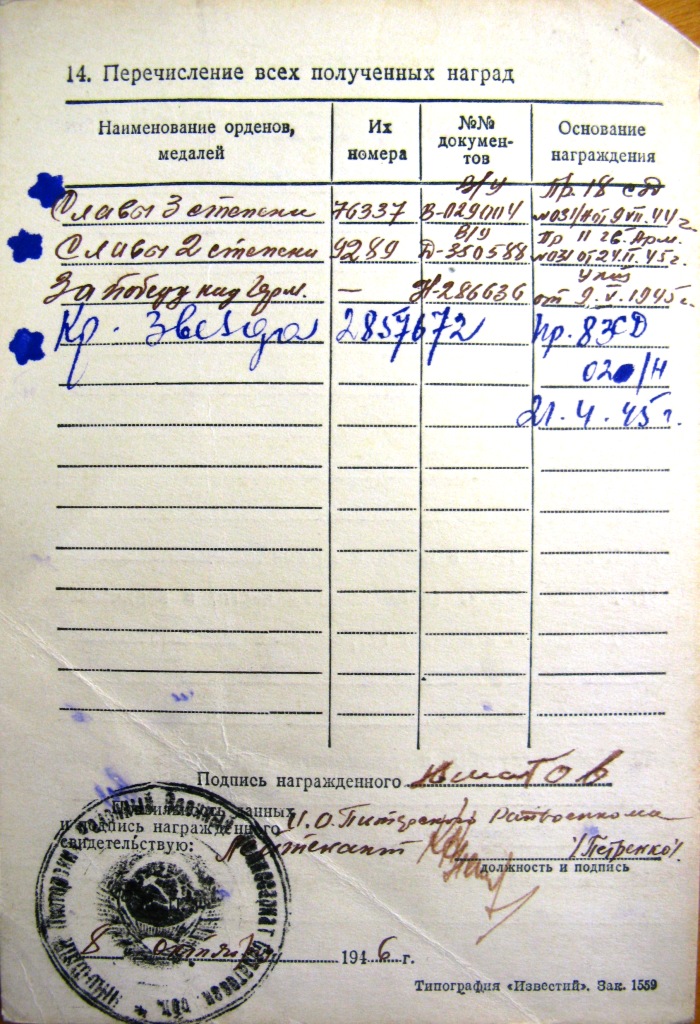 14. Перечисление всех полученных наград
Наименование орденов, медалей
Их номера
№№ документов
Основание награждения
В/У Пр. 18 сд
Славы 3 степени 76337 В-029004 №031/н от 9.VII.44 г.
В/У Пр 11 гв. Арм.
Славы 2 степени 9289 Д-350588 №031 от 24.II.45 г.
Указ
За победу над Герм. — от 9.V.1945 г.
Кр. Звезда 2857672 Пр. 83СД
02 /Н
21.4.45 г.
Подпись награжденного
Правильность данных
и подпись награжденного И.О. Питерского Райвоенкома
свидетельствую: Лейтенант /Петренко/.
должность и подпись
8 октября 1946 г.
Типография «Известий». Зак. 1559